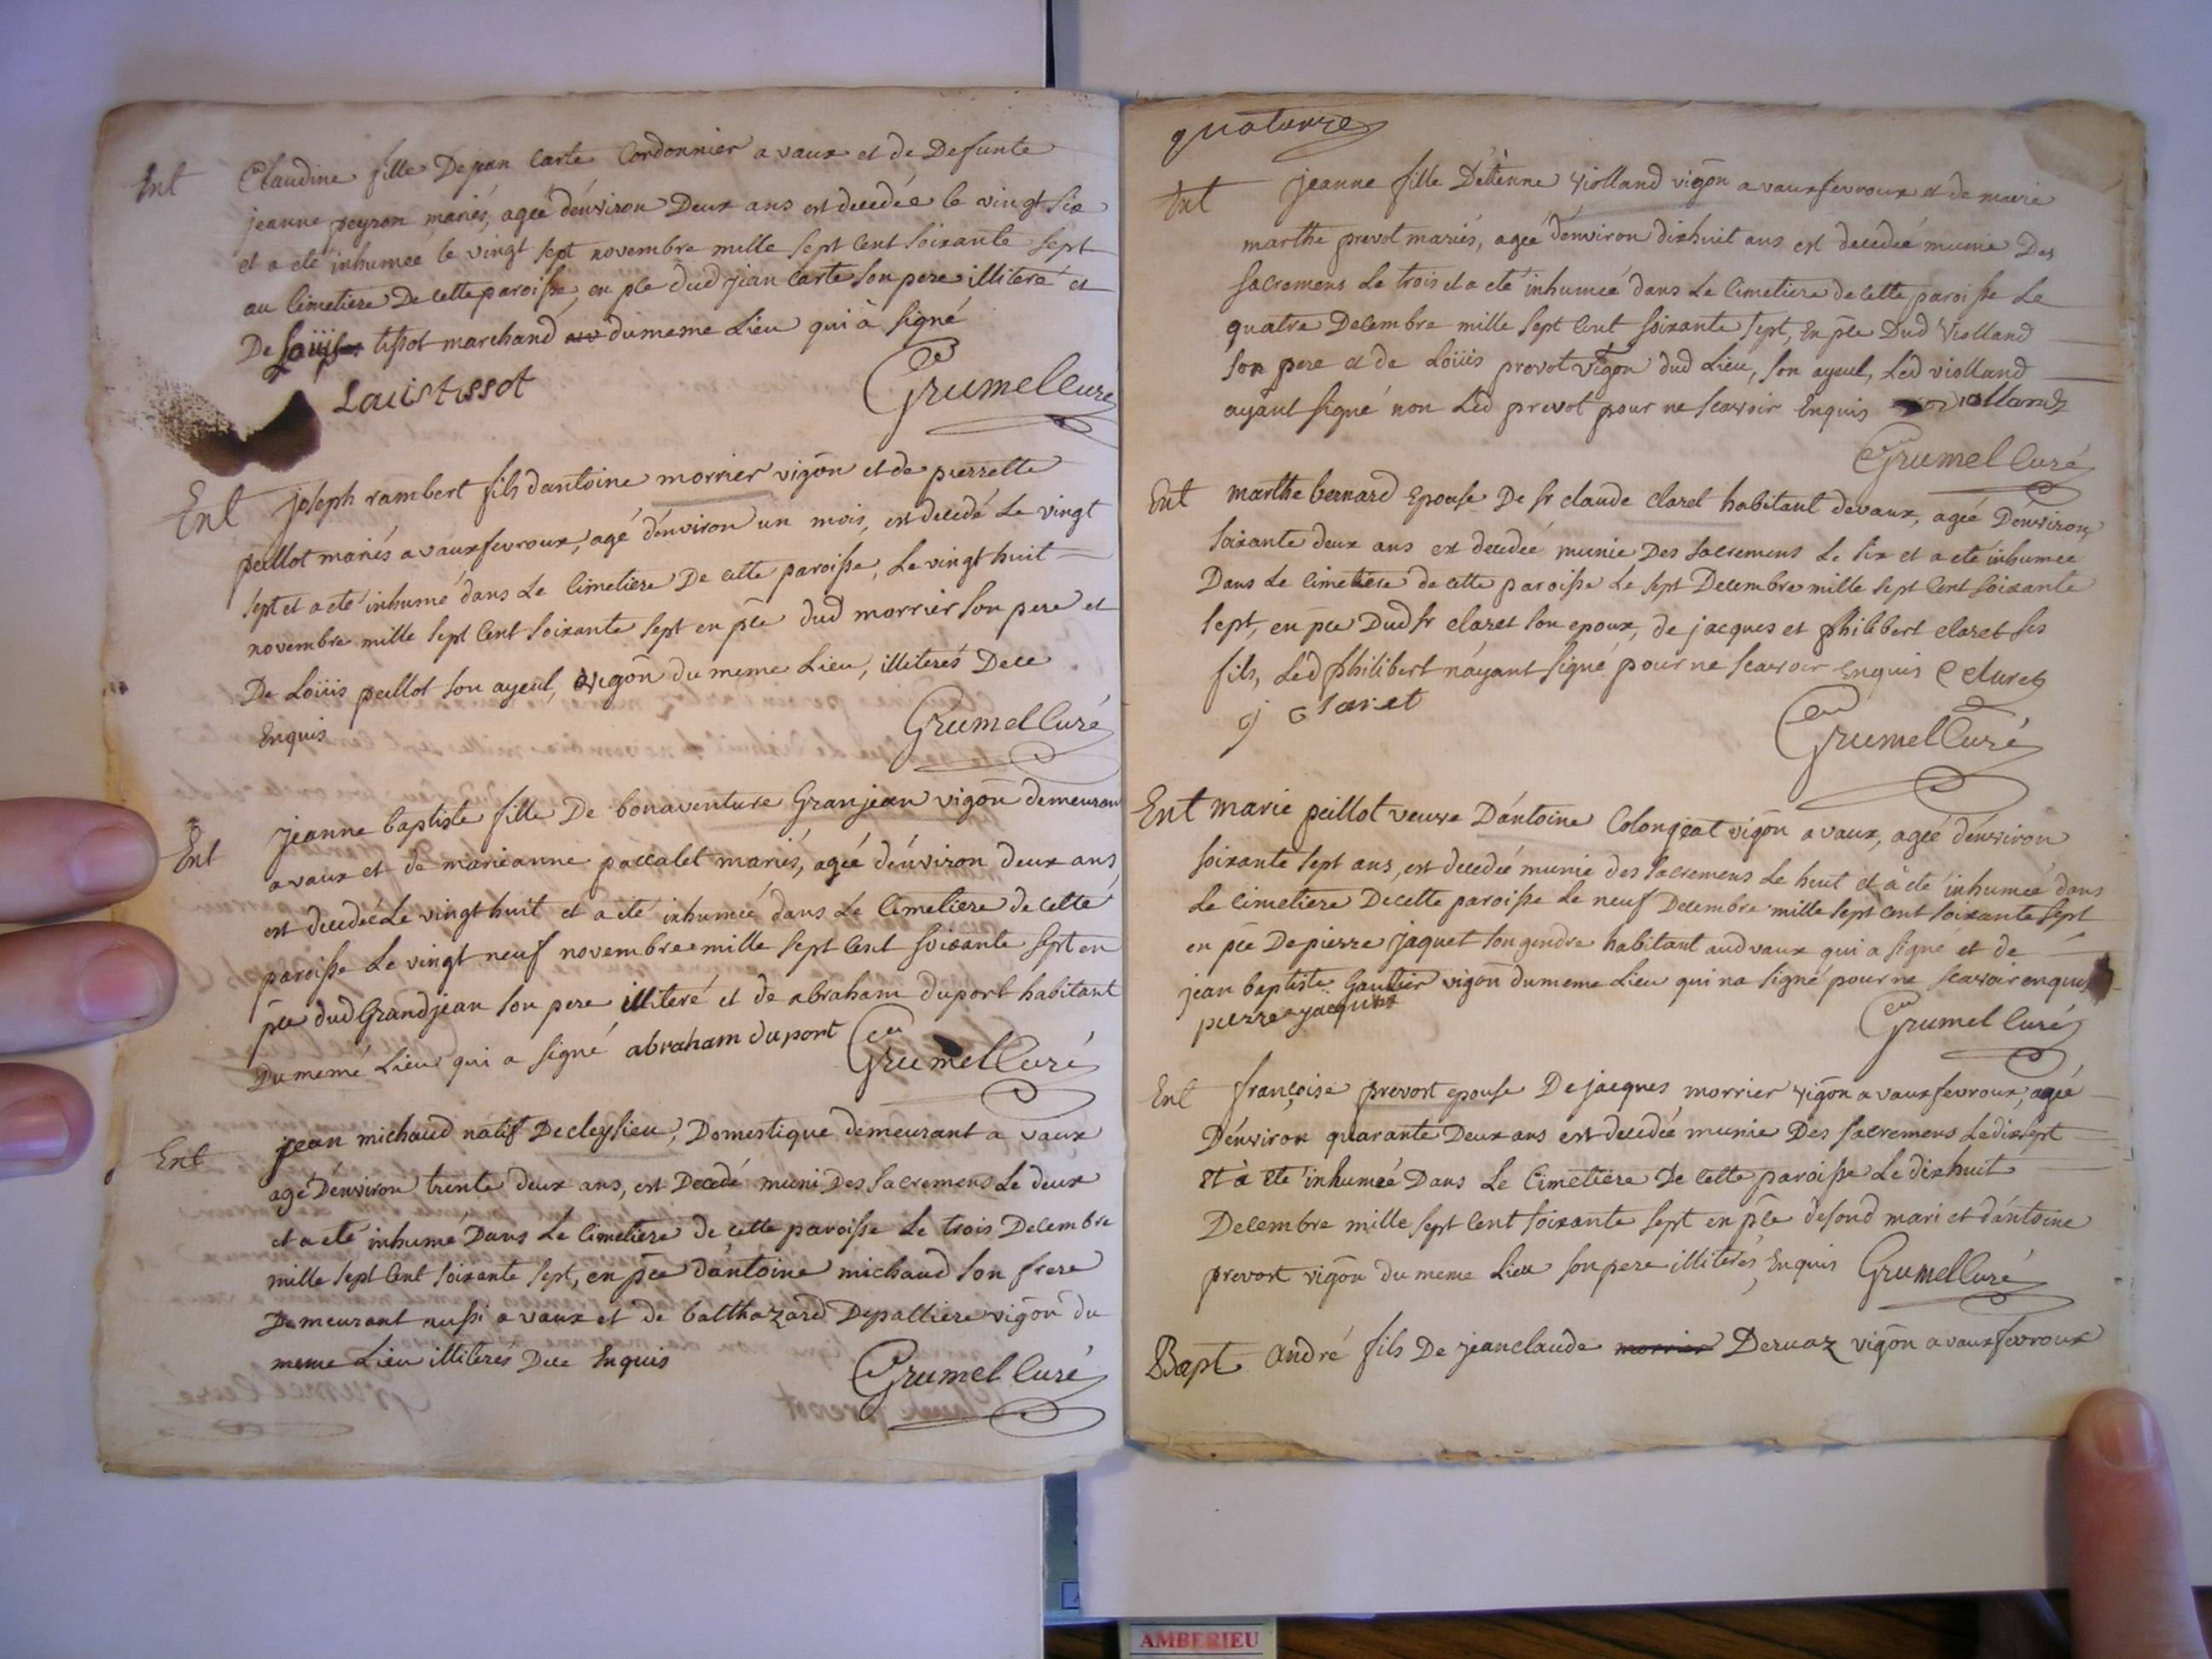 Ent Claudine fille De jean Carte Cordonnier a vaux et de Defunte
jeanne peyron mariés, agée d'environ Deux ans est decedée le vingt six
et a eté inhumée le vingt sept novembre mille sept Cent soixante sept
au Cimetiere De cette paroisse, en pce dud jean Carte son pere illiteré et
De Loüis tissot marchand du meme Lieu qui à signé
Louis tissot Grumel Curé
Ent joseph rambert fils d'antoine morrier vigon et de pierrette
peillot mariés a vauxfevroux, agé d'environ un mois, est decedé Le vingt
sept et a eté inhumé dans Le Cimetiere De cette paroisse, Le vingt huit
novembre mille sept Cent soixante sept en pce dud morrier son pere et
De Loüis peillot son ayeul, vigon du meme Lieu, illiterés De ce
Enquis Grumel Curé
Ent jeanne baptiste fille De bonaventure Granjean vigon demeurant
a vaux et de marieanne paccalet mariés, agée d'environ deux ans
est decedée Le vingt huit et a eté inhumée dans Le Cimetiere de cette
paroisse Le vingt neuf novembre mille sept Cent soixante sept en
pce dud Grandjean son pere illiteré et de abraham duport habitant
Du meme Lieu qui a signé abraham duport Grumel Curé
Ent jean michaud natif De cleysieu, Domestique demeurant a vaux
agé D'environ trente deux ans, est Decedé muni Des sacremens Le deux
et a eté inhumé Dans Le Cimetiere de cette paroisse Le trois Decembre
mille sept Cent soixante sept, en pce d'antoine michaud son frere
Demeurant aussi a vaux et de balthazard Depalliere vigon du
meme Lieu illiterés De ce Enquis Grumel Curé
quatorze
Ent jeanne fille D'etienne violland vigon a vauxfevroux et de marie
marthe prevot mariés, agée d'environ dixhuit ans est decedée munie Des
sacremens Le trois et a eté inhumée dans Le Cimetiere de cette paroisse Le
quatre Decembre mille sept Cent soixante sept, En pce Dud Violland
son pere et de Loüis prevot vigon dud Lieu, son ayeul, Led violland
ayant signé non Led prevot pour ne scavoir Enquis violland
Grumel Curé
Ent marthe bernard Epouse De sr claude claret habitant de vaux, agée D'environ
soixante deux ans est decedée munie Des sacremens Le six et a eté inhumee
Dans Le Cimetiere de cette paroisse Le sept Decembre mille sept Cent soixante
sept, en pce Dud sr claret son epoux, de jacques et philibert claret ses
fils, Led philibert n'ayant signé pour ne scavoir Enquis C claret
j claret Grumel Curé
Ent marie peillot veuve D'antoine Colongeat vigon a vaux, agée d'environ
soixante sept ans, est decedée munie des sacremens Le huit et à eté inhumée dans
Le Cimetiere De cette paroisse Le neuf Decembre mille sept Cent soixante sept
en pce De pierre jaquet son gendre habitant aud vaux qui a signé et de
jean baptiste Gaultier vigon du meme Lieu qui na signé pour ne scavoir enquis
pierre jaquet Grumel Curé
Ent françoise prevort epouse De jacques morrier vigon a vauxfevroux, agée
D'environ quarante Deux ans est decedée munie Des sacremens Le dixsept
Et à Eté inhumée Dans Le Cimetiere De cette paroisse Le dixhuit
Decembre mille sept Cent soixante sept en pce de sond mari et d'antoine
prevort vigon du meme Lieu son pere illiterés, Enquis Grumel Curé
Bapt André fils De jeanclaude morrier Deruaz vigon a vauxfevroux
AMBERIEU